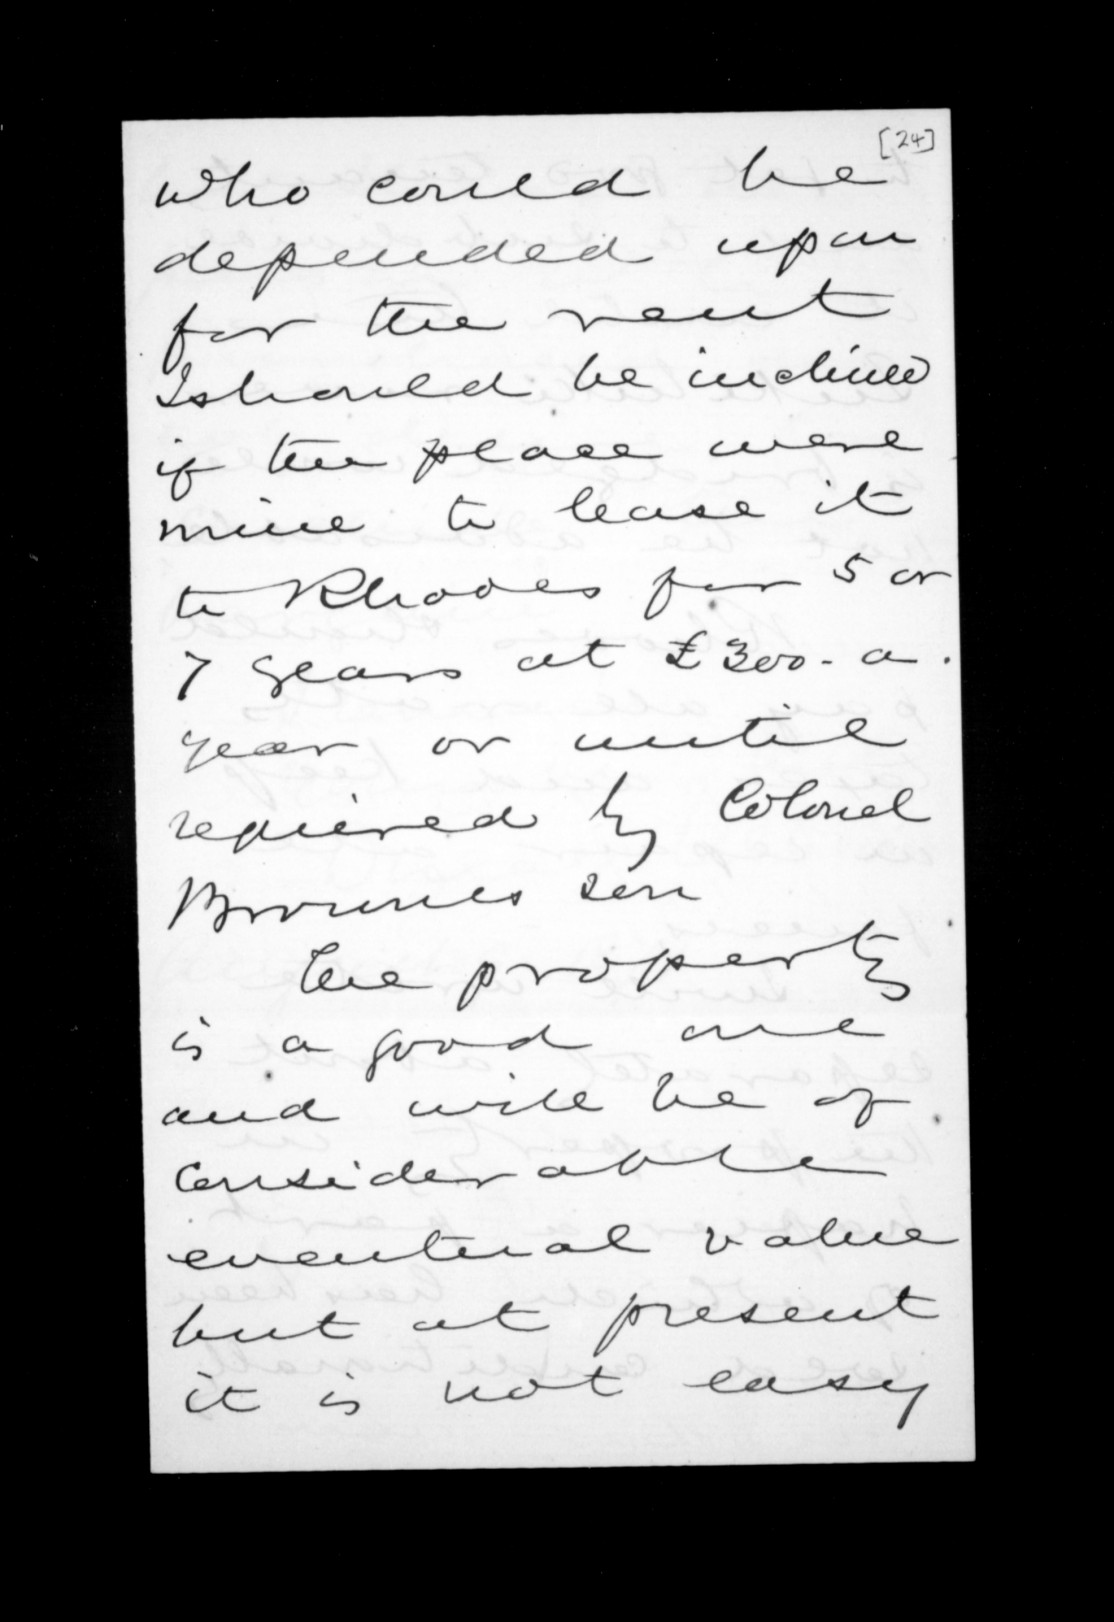 [24]
who could be
depended upon
for the rent
I should be inclined
if the place were
mine to lease it
to Rhodes for 5 or
7 years at £300 - a.
year or until
required by Colonel
Brownes son
The property
is a good one
and will be of
considerable
eventual value
but at present
it is not easy